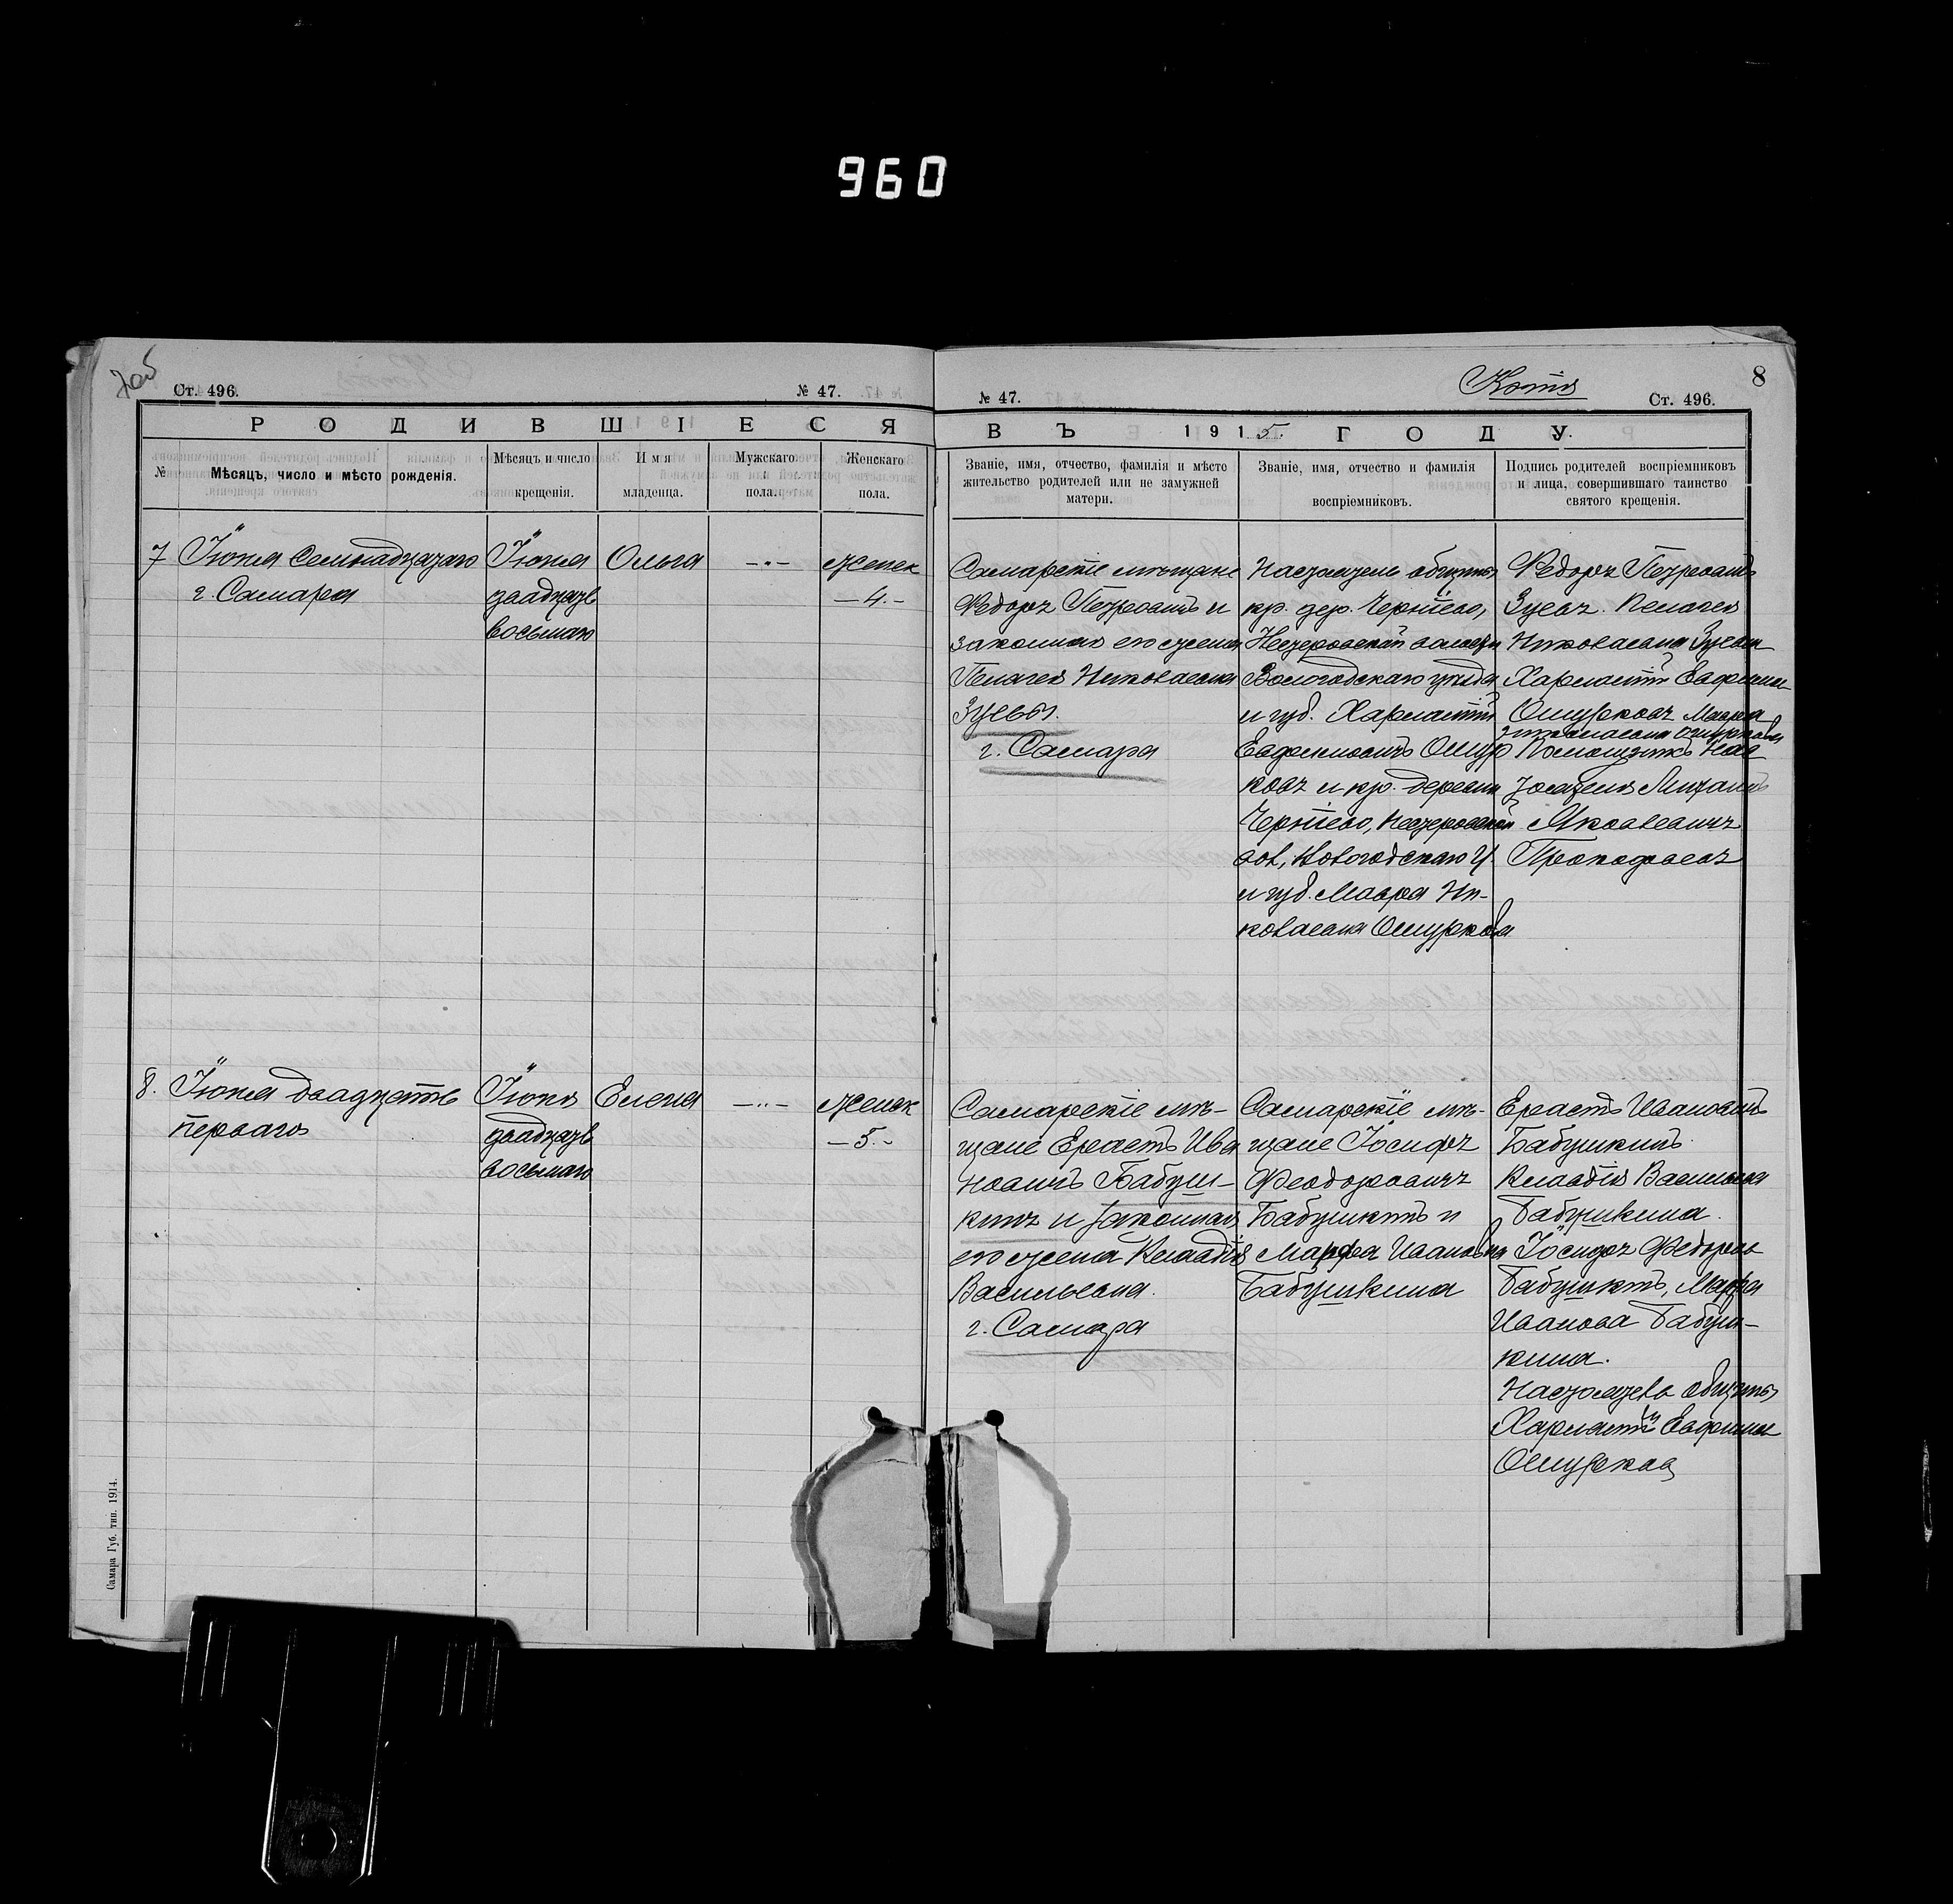 960
Ст. 496.
№ 47.
РОДИВШІЕСЯ
№
Мѣсяцъ, число и мѣсто рожденія.
Мѣсяцъ и число
крещенія.
Имя
младенца.
Мужскаго
пола.
Женскаго
пола.
7
Іюня Семнадцатаго
г. Самара
Іюня
двадцать
восьмаго
Ольга
женск
— 4. —
8.
Іюня двадцать
перваго
Іюня
двадцать
восьмаго
Елена
женск
— 5. —
Самара Губ. тип. 1914.
Копія
8
№ 47.
Ст. 496.
ВЪ 1915. ГОДУ.
Званіе, имя, отчество, фамилія и мѣсто
жительство родителей или не замужней
матери.
Званіе, имя, отчество и фамилія
воспріемниковъ.
Подпись родителей воспріемниковъ
и лица, совершившаго таинство
святого крещенія.
Самарскіе мѣщане
Ѳедоръ Петровичъ и
законная его жена
Пелагея Николаевна
Зуевы.
г. Самара
Настоятель общины
кр. дер.
волости
Вологодскаго уѣзда
и губ. Харлампій
Евфимовичъ Ошур
ковъ и кр. деревни
вол., Вологодскаго у.
и губ. Мавра Ни-
колаевна Ошуркова
Ѳедоръ Петровичъ
Зуевъ. Пелагея
Николаевна Зуева
Харлампій Евфимы
Ошурковъ Мавра
Николаевна Ошуркова
Помощникъ Нас
тоятеля Михаилъ
Яковлевичъ
Прокофьевъ
Самарскіе мѣ-
щане Ерастъ Ива
новичъ Бабуш-
кинъ и законная
его жена Клавдія
Васильевна.
г. Самара
Самарскіе мѣ-
щане Іосифъ
Феодоровичъ
Бабушкинъ и
Марфа Ивановна
Бабушкина
Ерастъ Ивановичъ
Бабушкинъ
Клавдія Васильевна
Бабушкина.
Іосифъ Ѳедоровъ
Бабушкинъ, Марфа
Иванова Бабуш-
кина.
Настоятель общины
Харлампій Евфимы
Ошурковъ